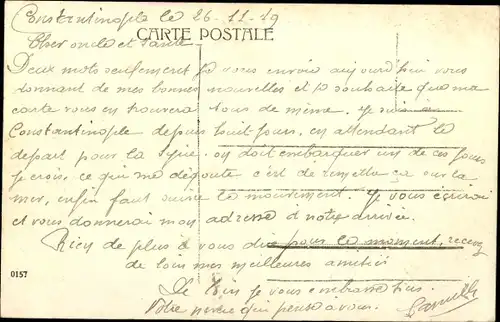 Constantinople le 26-11-19
CARTE POSTALE
Cher oncle et tante
Deux mots seulement je vous envoie aujourd'hui vous
donnant de mes bonnes nouvelles et je souhaite que ma
carte vous en trouvera tous de même. Je suis
Constantinople depuis huit jours, en attendant le
départ pour la Syrie. on doit embarquer un de ces jours
je crois, ce qui me dégoute c'est de remettre ça sur la
mer, enfin faut suivre le mouvement. Je vous écrirai
et vous donnerai mon adresse à notre arrivée.
Rien de plus à vous dire pour le moment, recevez
de tous mes meilleures amitiés
je vous embrasse tous
Votre neveu qui pense à vous.
0157